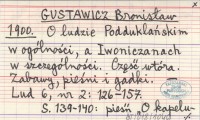 GUSTAWICZ Bronisław
1900. O ludzie Podduklańskim
w ogólności, a Iwoniczanach
w szczególności. Część wtóra.
Zabawy, pieśni i gadki.
Lud 6, nr 2: 126-157.
S. 139-140: pieśń „O kapelu-